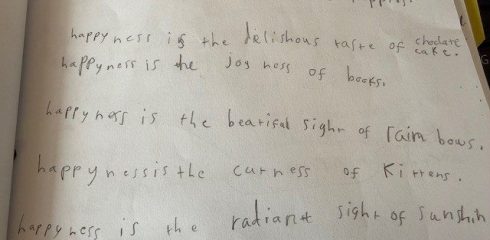 happyness is the delishous taste of choclate cake.
happyness is the joyness of books.
happyness is the beatiful sight of rain bows.
happynessis the cutness of Kittens.
happyness is the radiant sight of sunshin